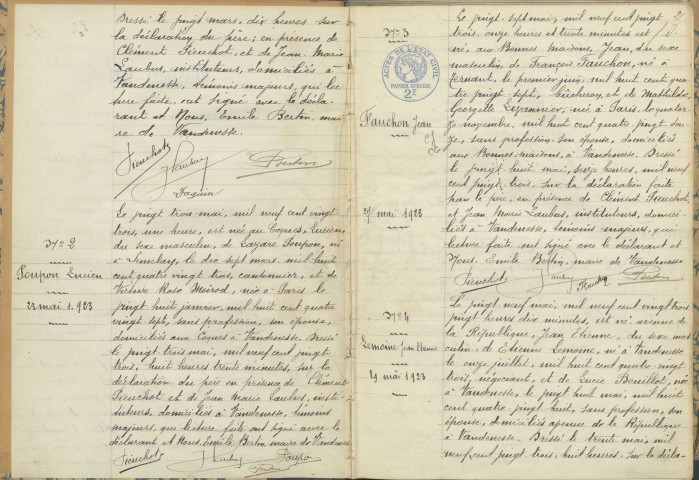 Dressé le vingt mars, dix heures sur
la déclaration du père; en présence de
Clément Tieuchot, et de Jean Marie
Laubus, instituteurs, domiciliés à
Vandenesse, témoins majeurs, qui lec
ture faite, ont signé avec le décla-
rant et Nous, Emile Bertin, mai
re de Vandenesse.
Tieuchot
Daguin
Nº 2
Poupon Lucien
23 mai 1923
Le vingt trois mai, mil neuf cent vingt
trois, une heure, est né au Coques, Lucien,
du sexe masculin, de Lazare Poupon, né
à Semelay, le dix sept mars, mil huit
cent quatre vingt trois, cantonnier, et de
Victoire Rosa Moirod, née à Paris le
vingt huit janvier, mil huit cent quatre
vingt sept, sans profession, son épouse,
domiciliés aux Coques à Vandenesse. Dressé
le vingt trois mai, mil neuf cent vingt
trois, huit heures trente minutes, sur la
déclaration du père en présence de Clément
Tieuchot et de Jean Marie Laubus, insti-
tuteurs, domiciliés à Vandenesse, témoins
majeurs, que lecture faite ont signé avec le
déclarant et Nous, Emile Bertin, maire de Vandenesse
Tieuchot Poupon
2
Nº 3
ACTES DE L'ÉTAT CIVIL
PAPIER SPÉCIAL
2F
Fauchon Jean
27 mai 1923
Le vingt sept mai, mil neuf cent vingt
trois, onze heures et trente minutes est
né, aux Bonnes maisons, Jean, du sexe
masculin, de François Fauchon, né à
Fernant, le premier juin, mil huit cent qua
tre vingt sept, bûcheron, et de Mathilde
Georgette Lepannier, née à Paris, le quator
ze novembre, mil huit cent quatre vingt dou
ze, sans profession, son épouse, domiciliés
aux Bonnes maisons, à Vandenesse. Dressé
le vingt huit mai, seize heures, mil neuf
cent vingt trois, sur la déclaration faite
par le père, en présence de Clément Tieuchot,
et Jean Marie Laubus, instituteurs, domici-
liés à Vandenesse, témoins majeurs, qui
lecture faite, ont signé avec le déclarant et
Nous, Emile Bertin, maire de Vandenesse
Tieuchot Fauchon
Nº 4
Lemoine Jean Etienne
29 mai 1923
Le vingt neuf mai, mil neuf cent vingt trois
vingt heures dix minutes, est né avenue de
la République, Jean Etienne, du sexe mas
culin, de Etienne Lemoine, né à Vandenesse
le onze juillet, mil huit cent quatre vingt
trois, négociant, et de Lucie Bouillot, née
à Vandenesse, le vingt huit mai, mil huit
cent quatre vingt huit, sans profession, son
épouse, domiciliés avenue de la République
à Vandenesse. Dressé le trente mai, mil
neuf cent vingt trois, huit heures, sur la décla-